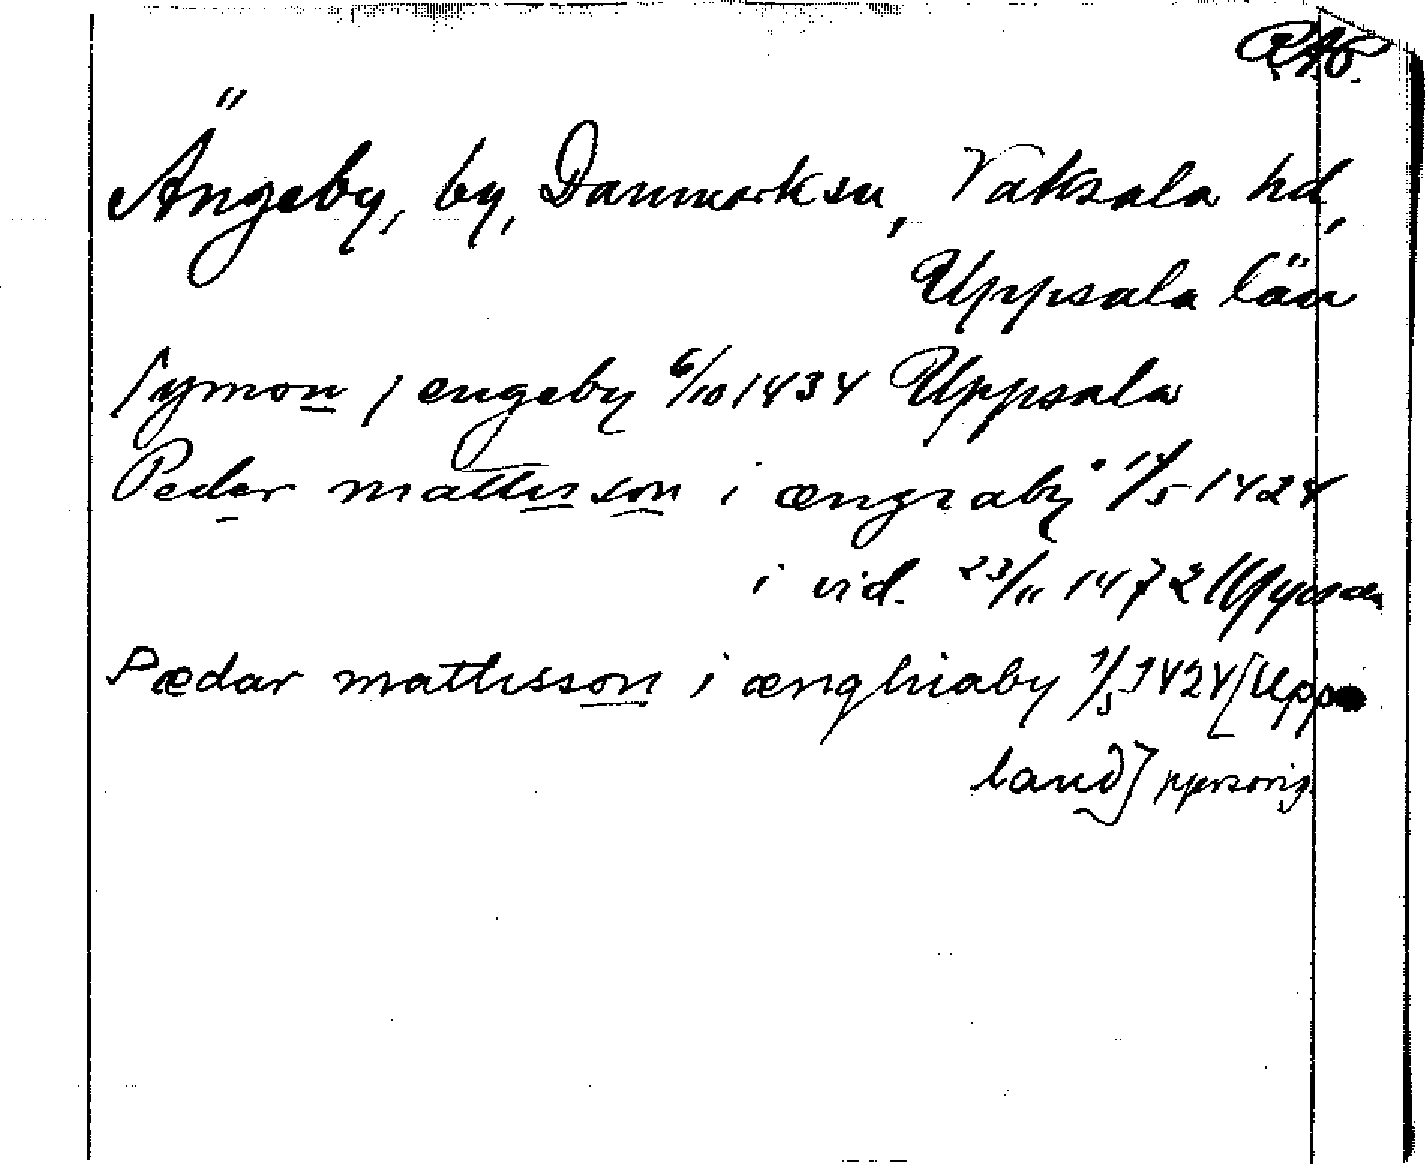 RAP.
Ängeby, by, Danmark sn, Vaksala hd,
Uppsala län
symon j engeby 6/10 1434 Uppsala
Pedar mattisson i ængiaby 14/5 1424
i vid. 23/11 1472 Uppsala
Pædar mattisson i ænghiaby 1/5 1424 [Upp
land]